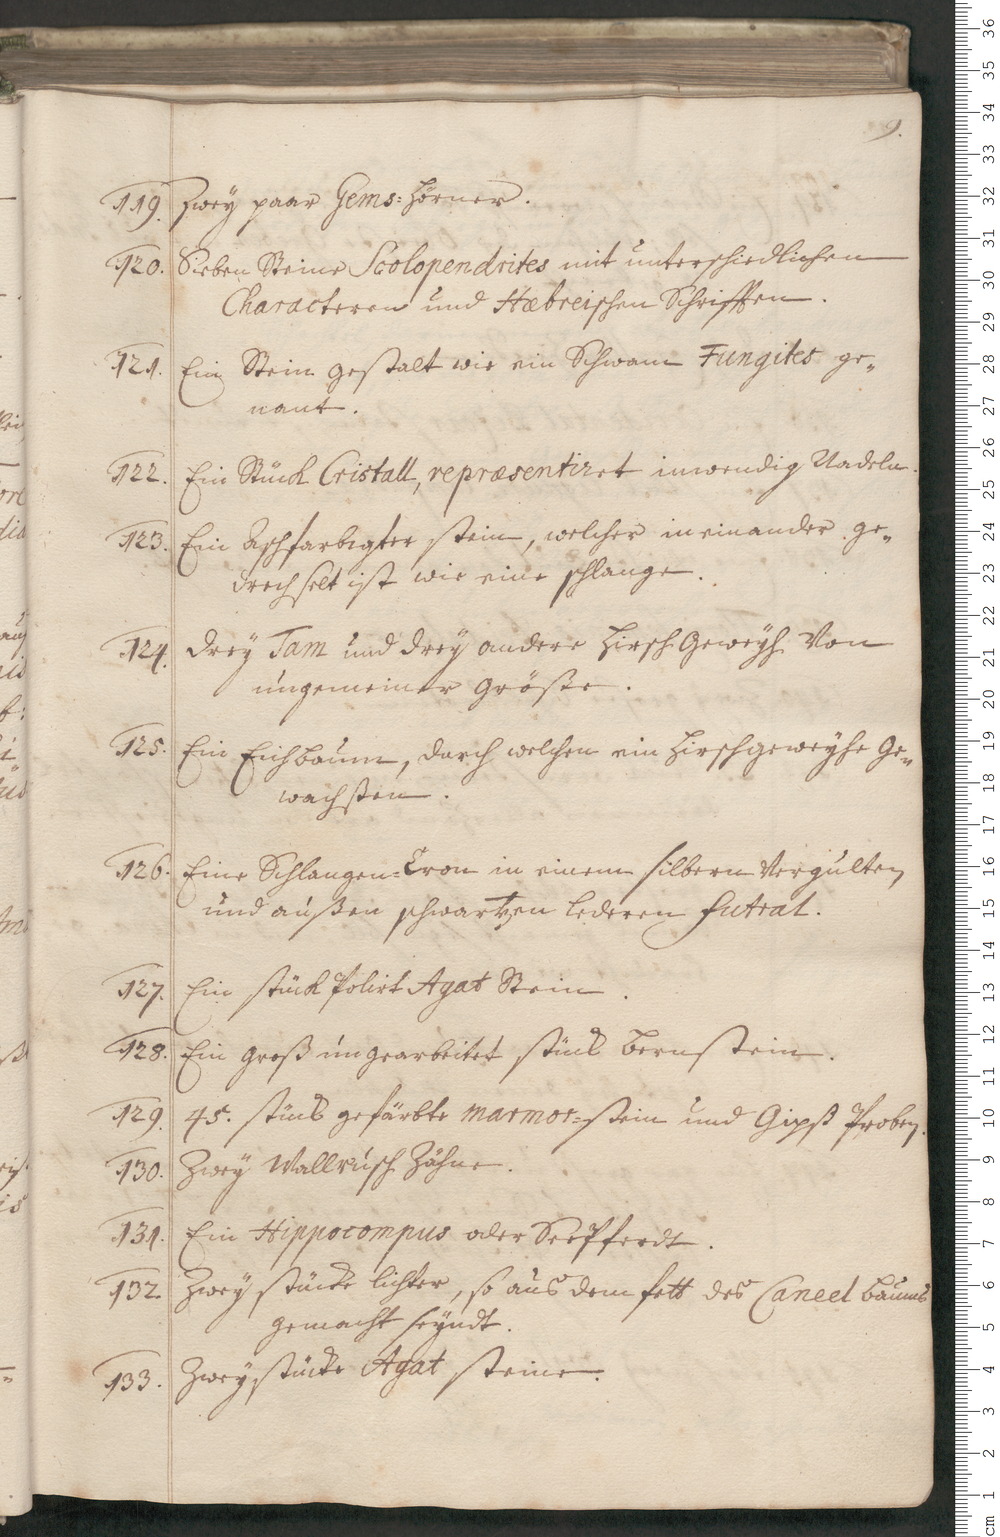 9.
119. Zwey paar Gems=hörner.
120. Sieben Steine Scolopendrites mit unterschiedlichen
Characteren und Hæbreischen Schrifften.
121. Ein Stein gestalt wie ein Schwam Fungites ge„
nant.
122. Ein Stück Cristall, repræsentiret inwendig Nadeln.
123. Ein Aschfarbigter stein, welcher in einander ge„
drechselt ist wie eine schlange.
124. Drey Tam und drey andere Hirsch Geweyh Von
ungemeiner Größe.
125. Ein Eichbaum, durch welchen ein Hirschgeweyhe Ge„
wachsten.
126. Eine Schlangen=Cron in einem silbern Vergulten
und außen schwartzen ledernen Futral.
127. Ein stück Polirt Agat Stein.
128. Ein groß ungearbeitet stück Bernstein.
129. 45. stück gefärbte marmor=stein und Gipst Proben.
130. Zwey Wallrusch Zähne.
131. Ein Hippocompus oder SeePferdt.
132. Zwey stücke lichter, so aus dem fett des Caneel baums
gemacht seyndt.
133. Zwey stücke Agat steine.
36
35
34
33
32
31
30
29
28
27
26
25
24
23
22
21
20
19
18
17
16
15
14
13
12
11
10
9
8
7
6
5
4
3
2
1
cm